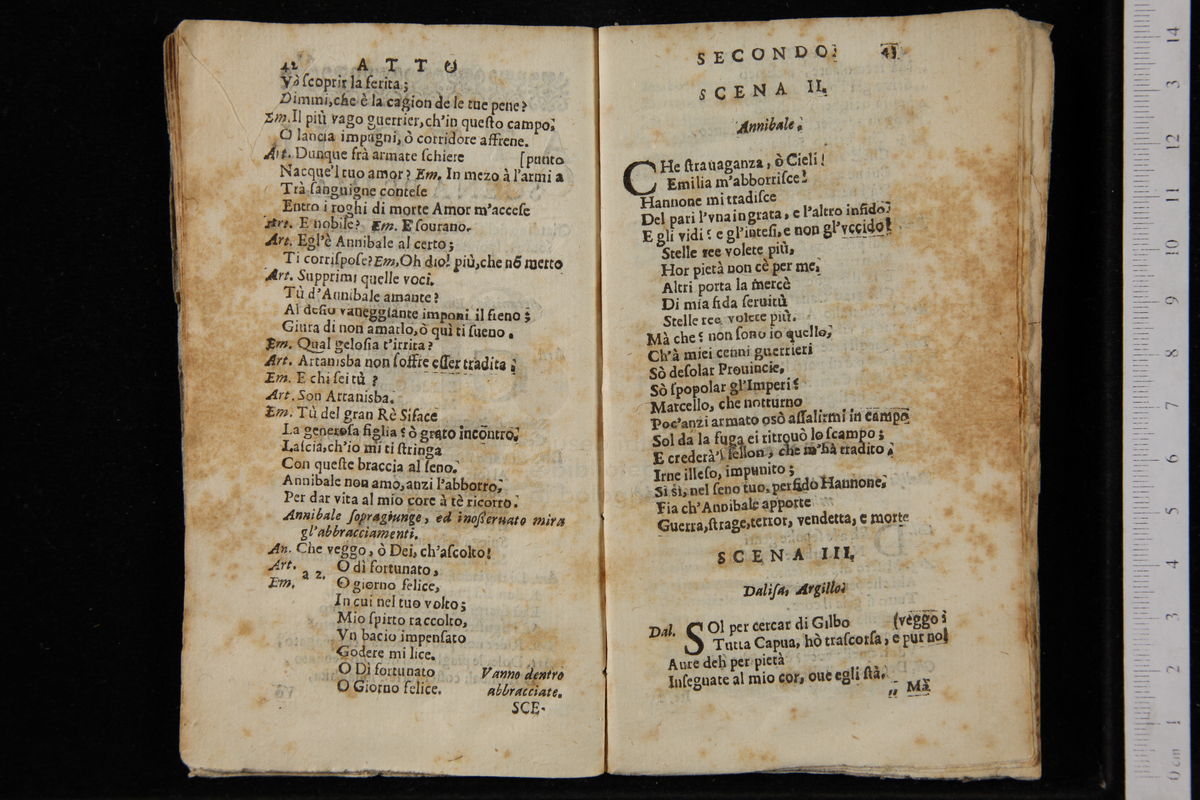 42 ATTO
Vò scoprir la ferita;
Dimmi, che è la cagion de le tue pene?
Em. Il più vago guerrier, ch'in questo campo,
O lancia impugni, ò corridore affrene.
Art. Dunque frà armate schiere [punto
Nacque'l tuo amor? Em. In mezo à l'armi a
Trà sanguigne contese
Entro i roghi di morte Amor m'accese
Art. E nobile? Em. E sourano.
Art. Egl'è Annibale al certo;
Ti corrispose? Em, Oh dio! più, che nõ merto
Art. Supprimi quelle voci.
Tù d'Annibale amante?
Al desio vaneggiante imponi il fieno;
Giura di non amarlo, ò quì ti sueno.
Em. Qual gelosia t'irrita?
Art. Artanisba non soffre esser tradita;
Em. E chi sei tù ?
Art. Son Artanisba.
Em. Tù del gran Rè Siface
La generosa figlia? ò grato incõntro;
Lascia, ch'io mi ti stringa
Con queste braccia al seno.
Annibale non amo, anzi l'abborro,
Per dar vita al mio core à tè ricorro.
Annibale sopragiunge, ed inosseruato mira
gl'abbracciamenti.
An. Che veggo, ò Dei, ch'ascolto!
Art. O dì fortunato,
Em. a 2. O giorno felice,
In cui nel tuo volto;
Mio spirto raccolto,
Vn bacio impensato
Godere mi lice.
O Dì fortunato Vanno dentro
O Giorno felice. abbracciate.
SCE-
SECONDO. 43
SCENA II.
Annibale.
CHe strauaganza, ò Cieli!
Emilia m'abborrisce!
Hannone mi tradisce
Del pari l'vna ingrata, e l'altro infido?
E gli vidi? e gl'intesi, e non gl'vccido!
Stelle ree volete più,
Hor pietà non cè per me,
Altri porta la mercè
Di mia fida seruitù
Stelle ree, volete più.
Mà che? non sono io quello,
Ch'à miei cenni guerrieri
Sò desolar Prouincie,
Sò spopolar gl'Imperi?
Marcello, che notturno
Poc'anzi armato osò assalirmi in campo
Sol da la fuga ei ritrouò lo scampo;
E crederà'l fellon, che m'hà tradito,
Irne illeso, impunito;
Sì sì, nel seno tuo, perfido Hannone,
Fia ch'Annibale apporte
Guerra, strage, terror, vendetta, e morte
SCENA III.
Dalisa, Argillo.
Dal. SOl per cercar di Gilbo (veggo:
Tutta Capua, hò trascorsa, e pur nol
Aure deh per pietà
Insegnate al mio cor, oue egli stà.
Mà